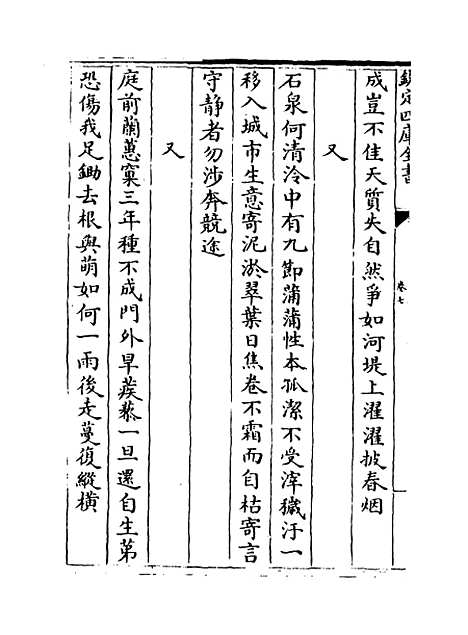 欽定四庫全書
卷七
成豈不佳天質失自然爭如河堤上濯濯披春烟
又
石泉何清泠中有九節蒲蒲性本孤潔不受滓穢汙一
移入城市生意寄泥淤翠葉日焦卷不霜而自枯寄言
守静者勿涉奔競途
又
庭前蘭蕙窠三年種不成門外旱蒺藜一旦還自生第
恐傷我足鋤去根與萌如何一雨後走蔓復縱横